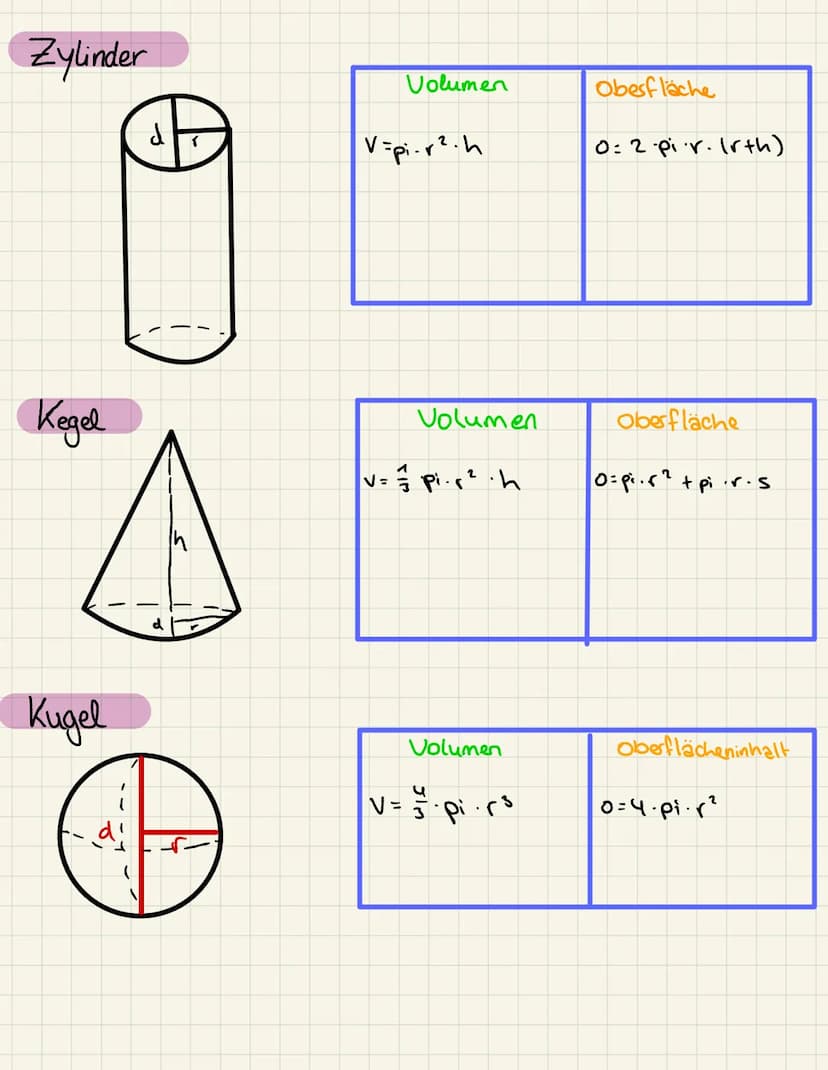 Zylinder
Volumen
Oberfläche
d
r
V=pi·r²·h
O=2·pi·r·(r+h)
Kegel
Volumen
Oberfläche
V=1/3 pi·r²·h
O=pi·r²+pi·r·s
h
d
r
Kugel
Volumen
Oberflächeninhalt
V=4/3·pi·r³
O=4·pi·r²
d
r